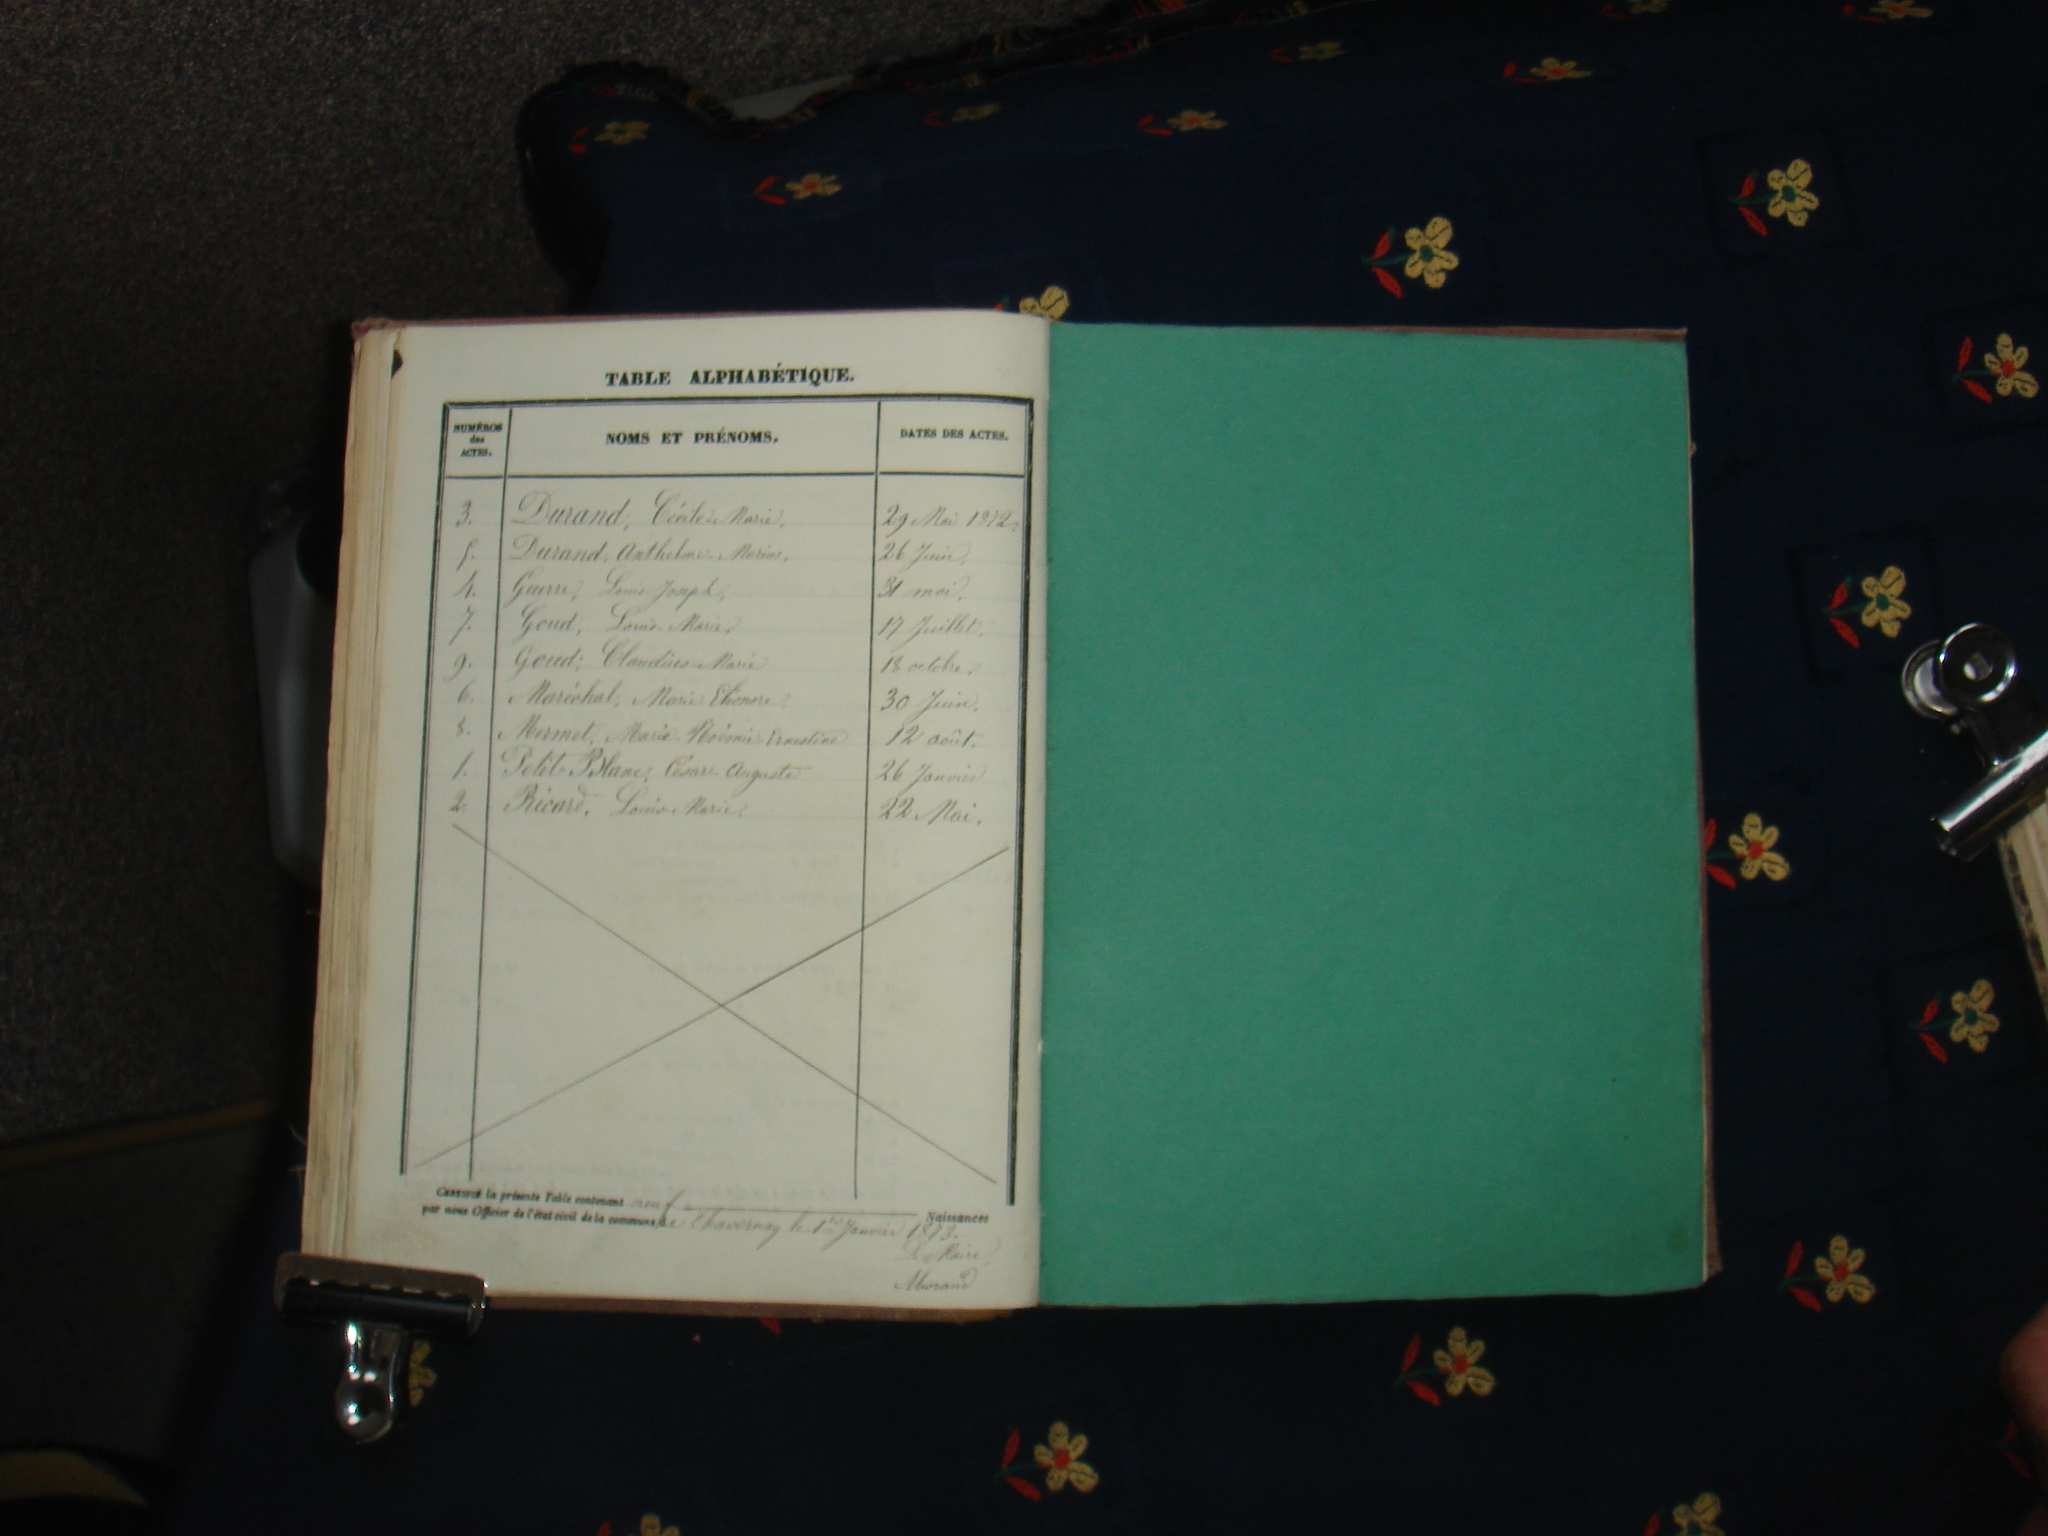 TABLE ALPHABÉTIQUE.
NUMÉROS des ACTES. NOMS ET PRÉNOMS. DATES DES ACTES.
3. Durand, Cécile Marie. 29 Mai 1872.
5. Durand, Anthelme Marius. 26 Juin.
4. Guerre, Louis Joseph, 31 mai.
7. Goud, Louis Marie, 17 Juillet.
9. Goud, Claudius Marie 18 octobre.
6. Maréchal, Marie Eléonore, 30 Juin.
8. Mermet, Marie Noémie Ernestine 12 août.
1. Petit-Blanc, César Auguste 26 Janvier
2. Récard, Louis Marie, 22 Mai.
CERTIFIÉ la présente Table contenant neuf Naissances
par nous Officier de l'état civil de la commune de Chavornay le 1er Janvier 1873.
Le Maire,
Morand